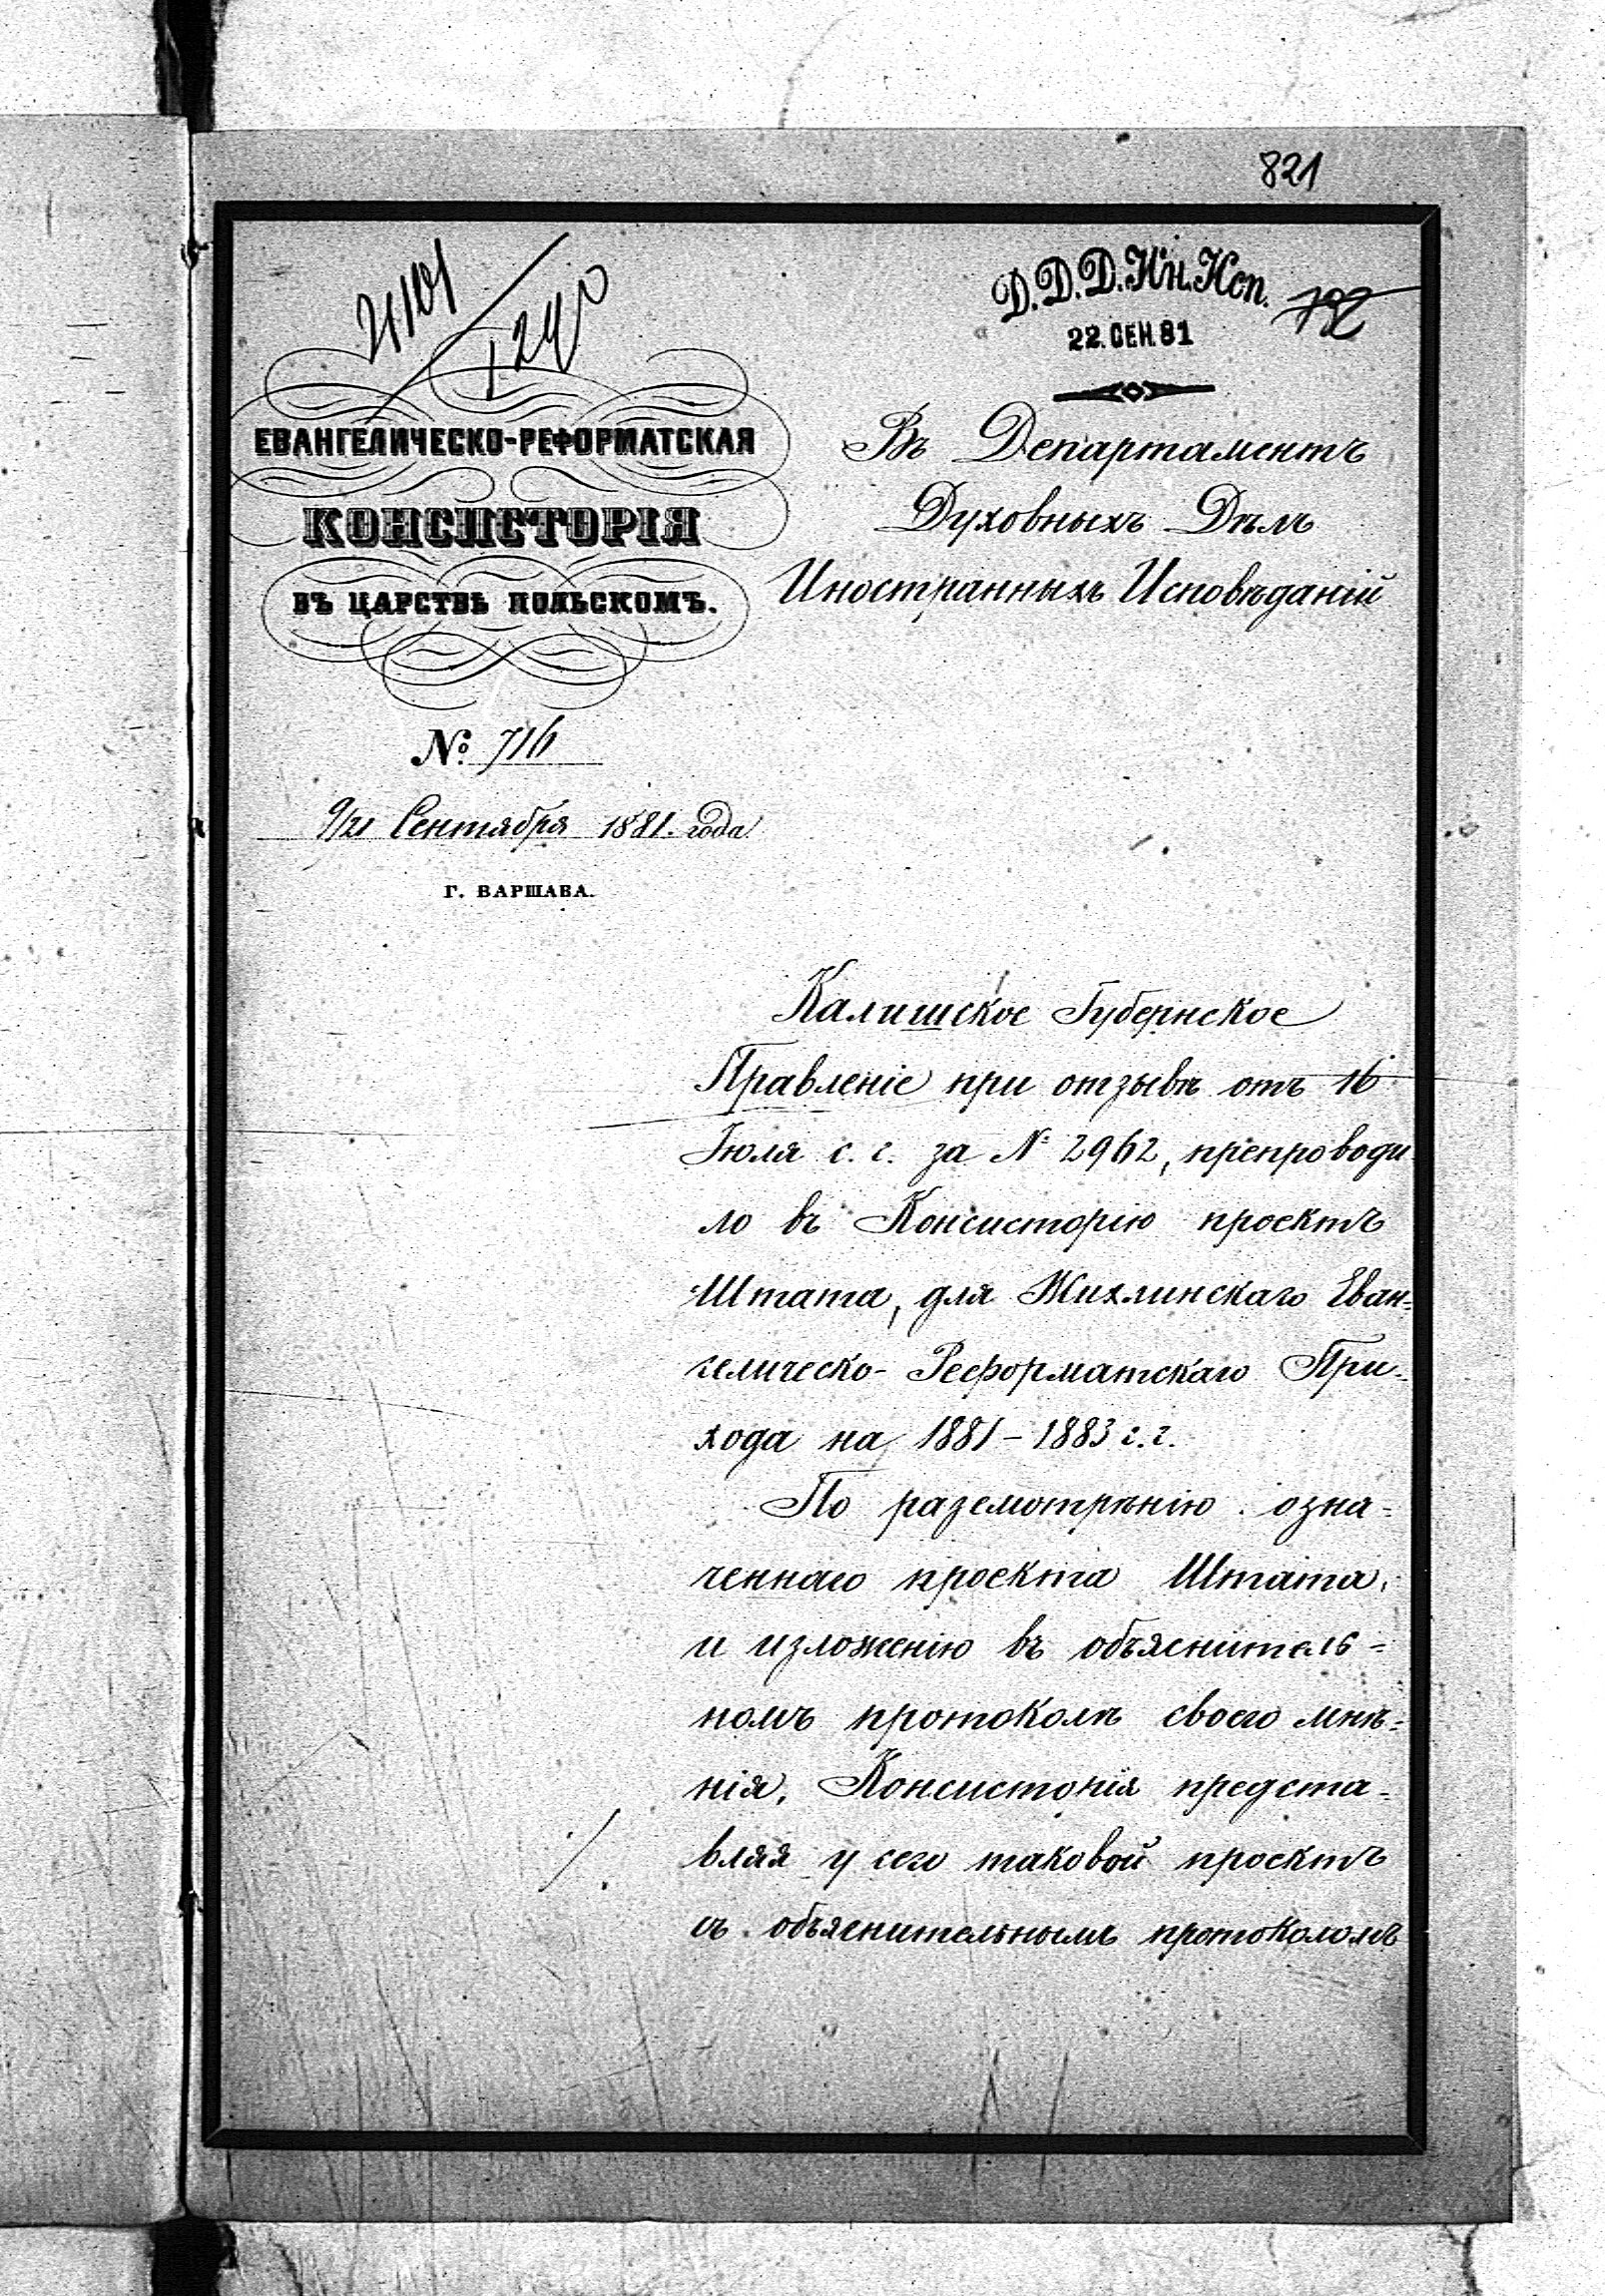 821
Д.Д.Д.Ин.Исп.
22.СЕН.81
ЕВАНГЕЛИЧЕСКО-РЕФОРМАТСКАЯ
КОНСИСТОРІЯ
ВЪ ЦАРСТВѢ ПОЛЬСКОМЪ.
№ 716
9/21 Сентября 1881 года
Г. ВАРШАВА.
Въ Департаментъ
Духовныхъ Дѣлъ
Иностранныхъ Исповѣданій
Калишское Губернское
Правленіе при отзывѣ отъ 16
Іюля с. г. за № 2962, препроводи
ло въ Консисторію проектъ
Штата, для Жихлинскаго Еван=
гелическо-Реформатскаго При=
хода на 1881-1883 г.г.
По разсмотрѣнію озна=
ченнаго проекта Штата,
и изложенію въ объяснитель=
номъ протоколѣ своего мнѣ=
нія, Консисторія предста=
вляя у сего таковой проектъ
съ объяснительнымъ протоколомъ